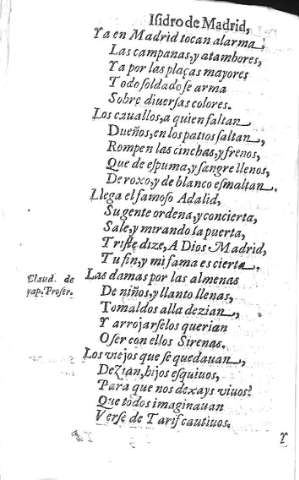 Isidro de Madrid,
Ya en Madrid tocan alarma,
Las campanas, y atambores,
Ya por las plaças mayores
Todo soldado se arma
Sobre diuersas colores.
Los cauallos, a quien faltan
Dueños, en los patios saltan,
Rompen las cinchas, y frenos,
Que de espuma, y sangre llenos,
De roxo, y de blanco esmaltan.
Llega el famoso Adalid,
Su gente ordena, y concierta,
Sale, y mirando la puerta,
Triste dize, A Dios Madrid,
Tu fin, y mi fama es cierta.
Claud. de
rap. Proser.
Las damas por las almenas
De niños, y llanto llenas,
Tomaldos alla dezian,
Y arrojarselos querian
O ser con ellos Sirenas.
Los viejos que se quedauan,
Dezian, hijos esquiuos,
Para que nos dexays viuos?
Que todos imaginauan
Verse de Tarif cautiuos.
Y